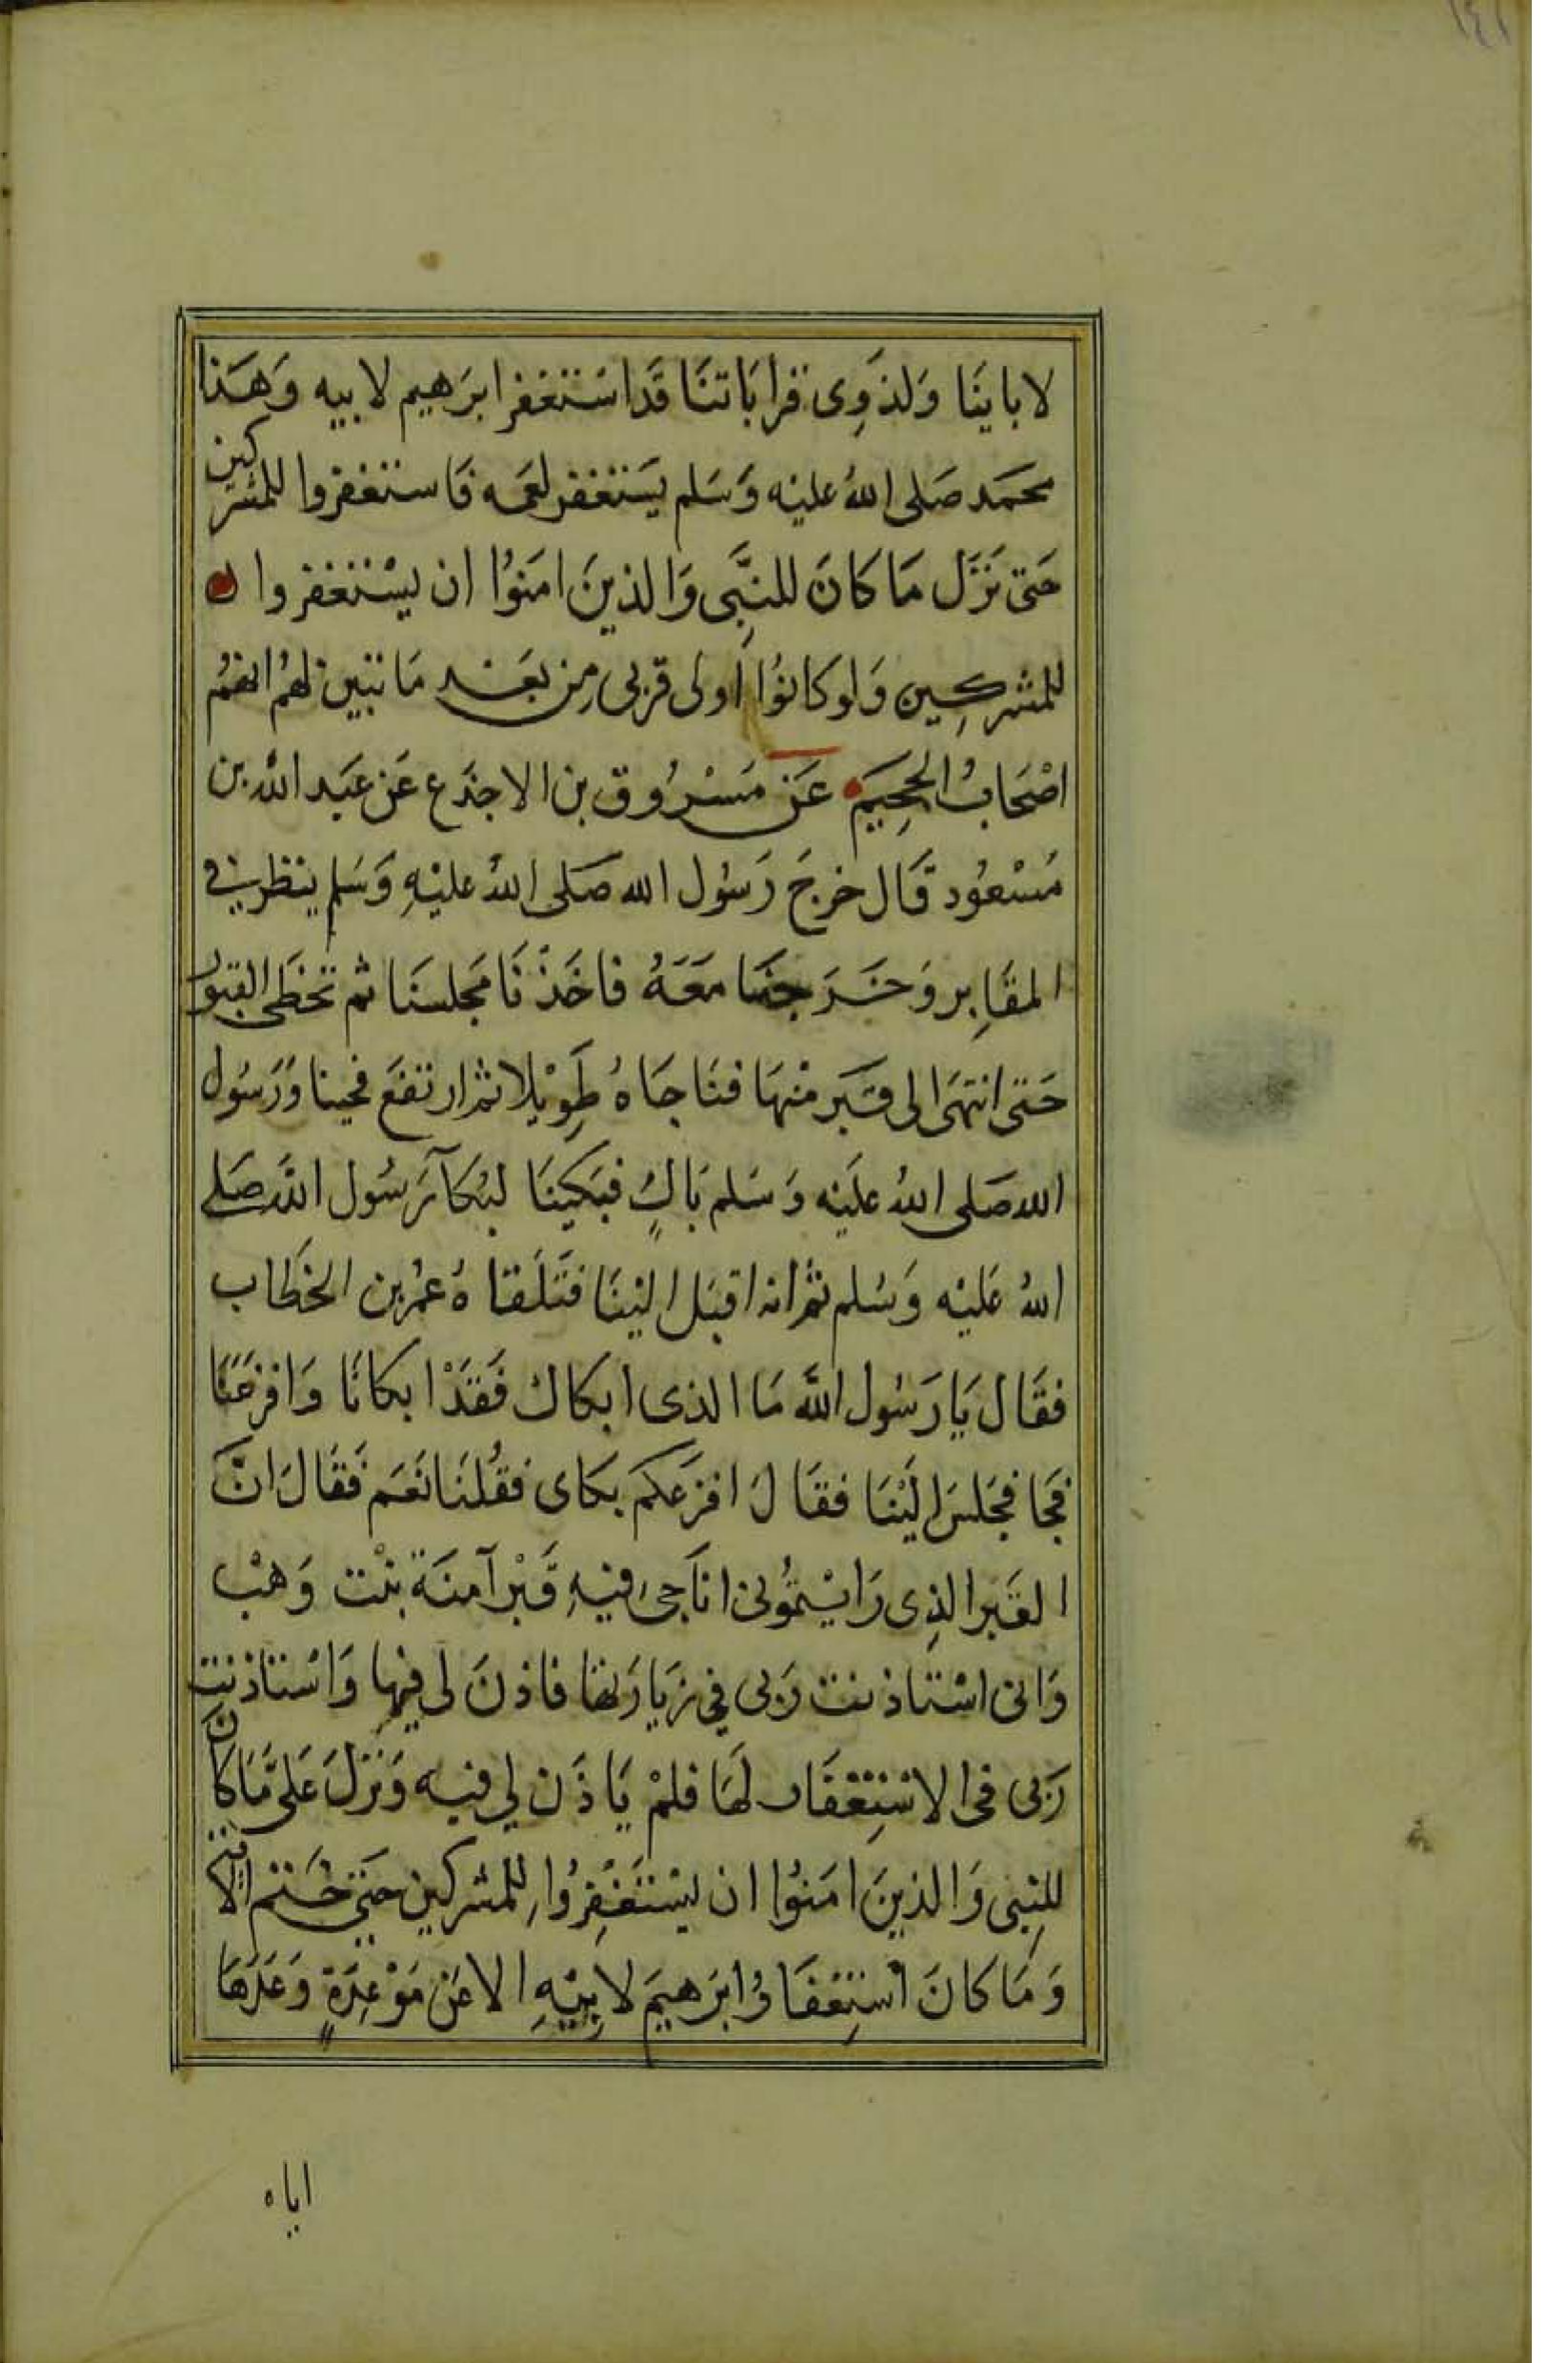 ١٤١
لاباينا ولذوى قراباتنا قد استغفر ابرهيم لابيه وهذا
محمد صلى الله عليه وسلم يستغفر لعمه فاستغفروا للمشركين
حتى نزل ما كان للنبى والذين امنوا ان يستغفروا
للمشركين ولو كانوا اولى قربى من بعد ما تبين لهم انهم
اصحاب الجحيم عن مسروق بن الاجدع عن عبد الله بن
مسعود قال خرج رسول الله صلى الله عليه وسلم ينظر في
المقابر وخرجنا معه فاخذنا مجلسنا ثم تخطى القبور
حتى انتهى الى قبر منها فناجاه طويلا ثم ارتفع فجينا ورسول
الله صلى الله عليه وسلم باكٍ فبكينا لبكآء رسول الله صلى
الله عليه وسلم ثم انه اقبل الينا فتلقاه عمر بن الخطاب
فقال يا رسول الله ما الذى ابكاك فقد ابكانا وافزعنا
فجا فجلس الينا فقال افزعكم بكاى فقلنا نعم فقال ان
القبر الذى رايتمونى اناجى فيه قبر آمنة بنت وهب
وانى استاذنت ربى في زيارتها فاذن لى فيها واستاذنت
ربى فى الاستغفار لها فلم ياذن لي فيه ونزل علىّ ما كان
للنبى والذين امنوا ان يستغفروا للمشركين حتى ختم الاية
وما كان استغفار ابرهيم لابيه الا عن موعدةٍ وعدها
اياه